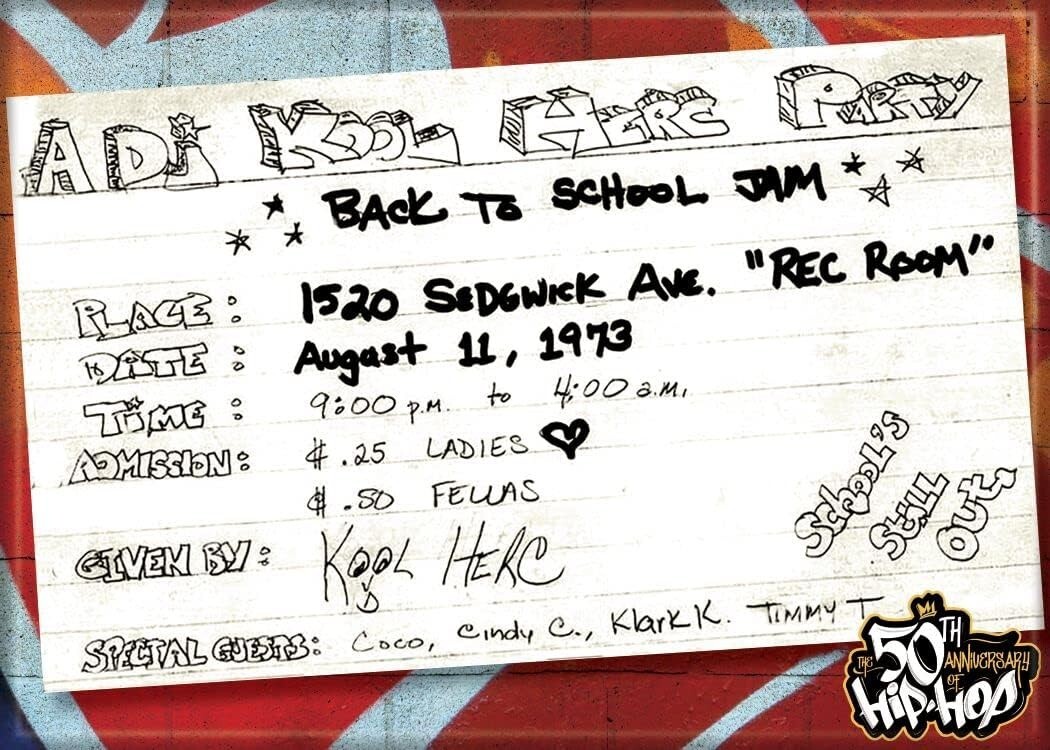 A DJ KOOL HERC PARTY
BACK TO SCHOOL JAM
PLACE: 1520 SEDGWICK AVE. "REC ROOM"
DATE: August 11, 1973
TIME: 9:00 p.m. to 4:00 a.m.
ADMISSION: $.25 LADIES
$.50 FELLAS
GIVEN BY: KOOL HERC
SPECIAL GUESTS: Coco, Cindy C., Klark K. TIMMY T
SCHOOL'S
STILL
OUT.
THE 50TH
ANNIVERSARY
OF
HIP-HOP